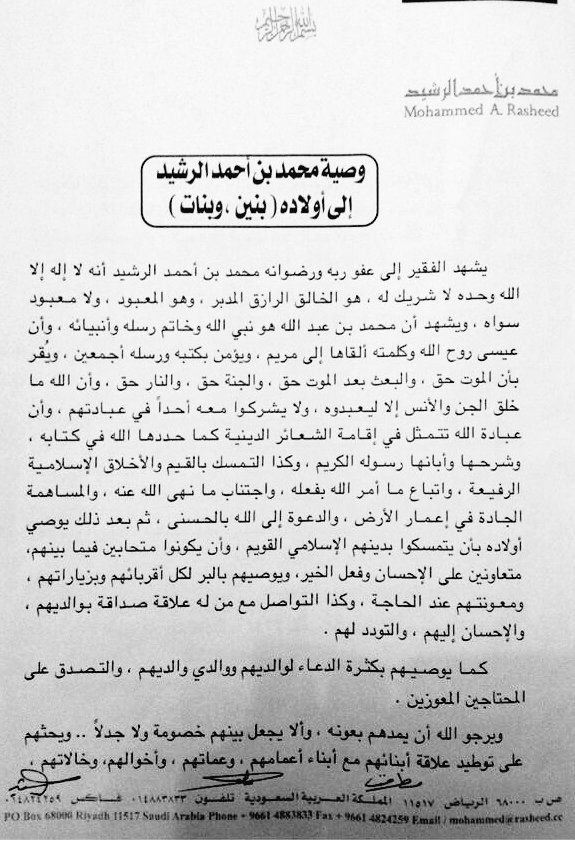 بسم الله الرحمن الرحيم
محمد بن أحمد الرشيد
Mohammed A. Rasheed
وصية محمد بن أحمد الرشيد
إلى أولاده ( بنين ، وبنات )
يشهد الفقير إلى عفو ربه ورضوانه محمد بن أحمد الرشيد أنه لا إله إلا
الله وحده لا شريك له ، هو الخالق الرازق المدبر ، وهو المعبود ، ولا معبود
سواه ، ويشهد أن محمد بن عبد الله هو نبي الله وخاتم رسله وأنبيائه ، وأن
عيسى روح الله وكلمته ألقاها إلى مريم ، ويؤمن بكتبه ورسله أجمعين ، ويُقر
بأن الموت حق ، والبعث بعد الموت حق ، والجنة حق ، والنار حق ، وأن الله ما
خلق الجن والأنس إلا ليعبدوه ، ولا يشركوا معه أحداً في عبادتهم ، وأن
عبادة الله تتمثل في إقامة الشعائر الدينية كما حددها الله في كتابه ،
وشرحها وأبانها رسوله الكريم ، وكذا التمسك بالقيم والأخلاق الإسلامية
الرفيعة ، واتباع ما أمر الله بفعله ، واجتناب ما نهى الله عنه ، والمساهمة
الجادة في إعمار الأرض ، والدعوة إلى الله بالحسنى ، ثم بعد ذلك يوصي
أولاده بأن يتمسكوا بدينهم الإسلامي القويم ، وأن يكونوا متحابين فيما بينهم،
متعاونين على الإحسان وفعل الخير، ويوصيهم بالبر لكل أقربائهم وبزياراتهم ،
ومعونتهم عند الحاجة ، وكذا التواصل مع من له علاقة صداقة بوالديهم ،
والإحسان إليهم ، والتودد لهم .
كما يوصيهم بكثرة الدعاء لوالديهم ووالدي والديهم ، والتصدق على
المحتاجين المعوزين .
ويرجو الله أن يمدهم بعونه ، وألا يجعل بينهم خصومة ولا جدلاً .. ويحثهم
على توطيد علاقة أبنائهم مع أبناء أعمامهم ، وعماتهم ، وأخوالهم، وخالاتهم ،
ص ب ٦٨٠٠٠ الرياض ١١٥١٧ المملكة العربية السعودية تلفون ٠١٤٨٨٣٨٣٣ فاكس ٠١٤٨٢٤٢٥٩
PO Box 68000 Riyadh 11517 Saudi Arabia Phone + 9661 4883833 Fax + 9661 4824259 Email / mohammed@rasheed.cc